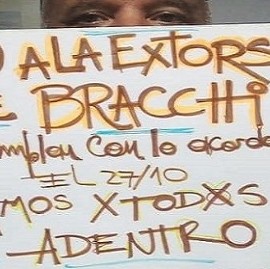 A LA EXTORS
BRACCHI
CON LO ACORDA
EL 27/10
MOS XTODXS
ADENTRO